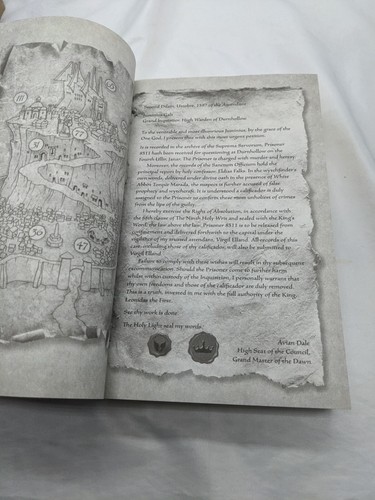 111
77
30
47
Second Dawn, Useden, 1597 of the Ascendant
Grand Inquisitor High Warden of Durnhollow
To the venerable and most illustrious Justinian, by the grace of the
One God, I present thee with this most urgent petition.
It is recorded in the archive of the Supreme Sanctorum, Prisoner
8913 hath been received for questioning at Durnhollow on the
Fourth Ellin Janus. The Prisoner is charged with murder and heresy.
Moreover, the records of the Sanctum Officium hold the
principal report by holy confessor, Eldias Fallin. In the
own words, delivered under divine oath in the presence of White
Abbot Temple Manida, the suspect is further accused of false
prophecy and wyrdcraft. It is understood a calificador is duly
assigned to the Prisoner to confirm these most unholiest of crimes
from the lips of the guilty.
I hereby exercise the Right of Absolution, in accordance with
the fifth claim of The Ninth Holy Writ and sealed with the King's
Word; the law above the law. Prisoner 8913 is to be released from
confinement and delivered forthwith to the capital under the
vigilance of my trusted attendant, Virgil Elland. All records of this
case, including those of thy calificador, will also be submitted to
Virgil Elland.
Failure to comply with these wishes will result in thy subsequent
excommunication. Should the Prisoner come to further harm
whilst within custody of the Inquisition, I personally warrant that
thy own freedoms and those of the calificador are duly removed.
This is a truth, invested in me with the full authority of the King,
Leonidas the First.
See thy work is done.
The Holy Light seal my words
Avian Dale
High Seat of the Council,
Grand Master of the Dawn